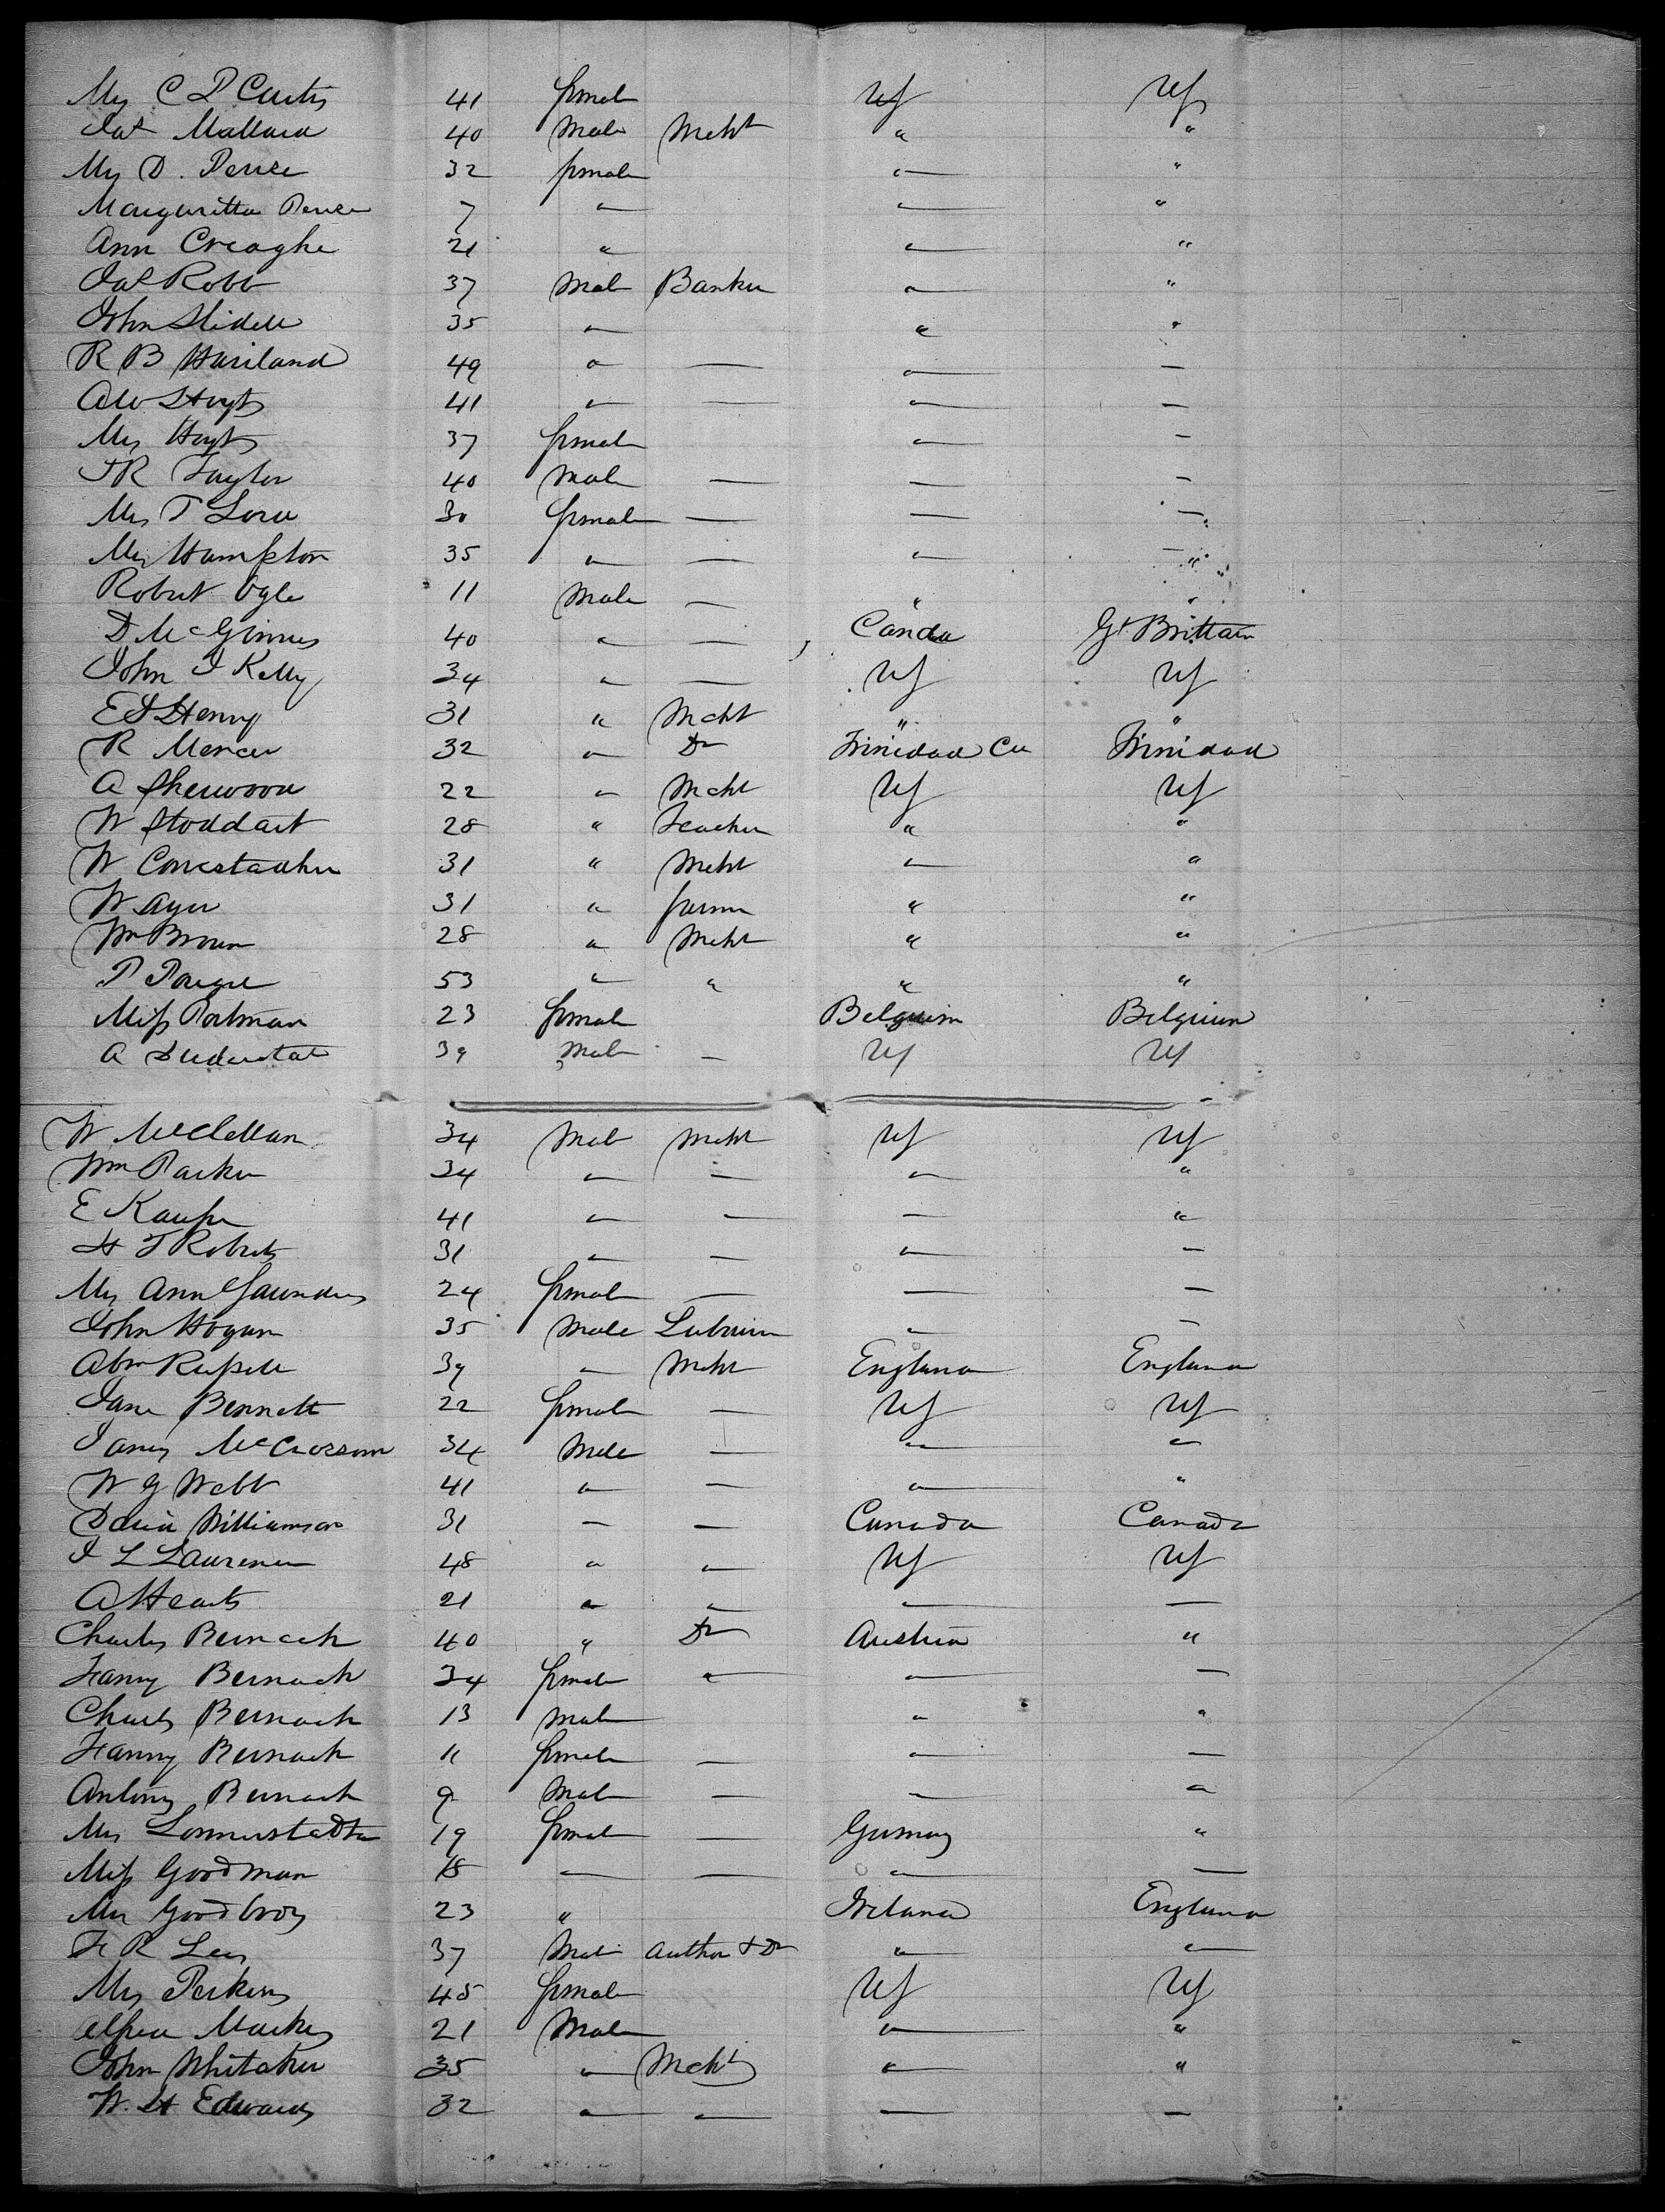 Mrs C P Curtis 41 female US US
Jas Mallard 40 Male Mcht " "
Mrs D. Perse 32 female " "
Margaritta Perse 7 " " "
Ann Creaghe 21 " " "
Jas Robb 37 Male Banker " "
John Slidell 35 " " "
R B Haviland 49 " — " —
41 " — " —
Mrs Hoyt 37 female " —
J R Taylor 40 Male — — —
Mrs T Lord 30 female — — —
Mrs Hampton 35 " — " — "
Robert Ogle 11 Male — " "
D McGinnes 40 " — Canda Gt Brittain
John J Kelly 34 " — US US
E J Henry 31 " Mcht " "
R Mercer 32 " Dr Trinidad Cu Trinidad
A Sherwood 22 " Mcht US US
W Stoddart 28 " Teacher " "
W 31 " Mcht " "
W Ayer 31 " farmer " "
Wm Brown 28 " Mcht " "
P 53 " " " "
Miss Portman 23 female Belguim Belguim
A 39 Male — US US
W McClellan 34 Male Mcht US US
Wm Parker 34 " — " "
E 41 " — — "
H T Roberts 31 " — " —
Mrs Ann Saunders 24 female — — —
John Hogan 35 Male " —
Abm Russell 39 " Mcht England England
Jane Bennett 22 female — US US
James 34 Male — " "
W G Webb 41 " — " "
David Williamson 31 — — Canada Canada
J L Laurence 48 " " US US
A 21 " " " —
Charles Bernack 40 " Dr Austria "
Fanny Bernack 34 female " " —
Charles Bernack 13 Male " "
Fanny Bernack 11 female — " —
Antony Bernack 9 Male — — "
Mrs 19 female — Germany "
Miss Goodman 18 — — " —
Mrs 23 " Ireland England
F R Lees 37 Male Author & Dr " "
Mrs Perkins 45 female US US
Alfred 21 Male " "
John Whitaker 35 " Mcht " "
W. H Edwards 32 " — — —